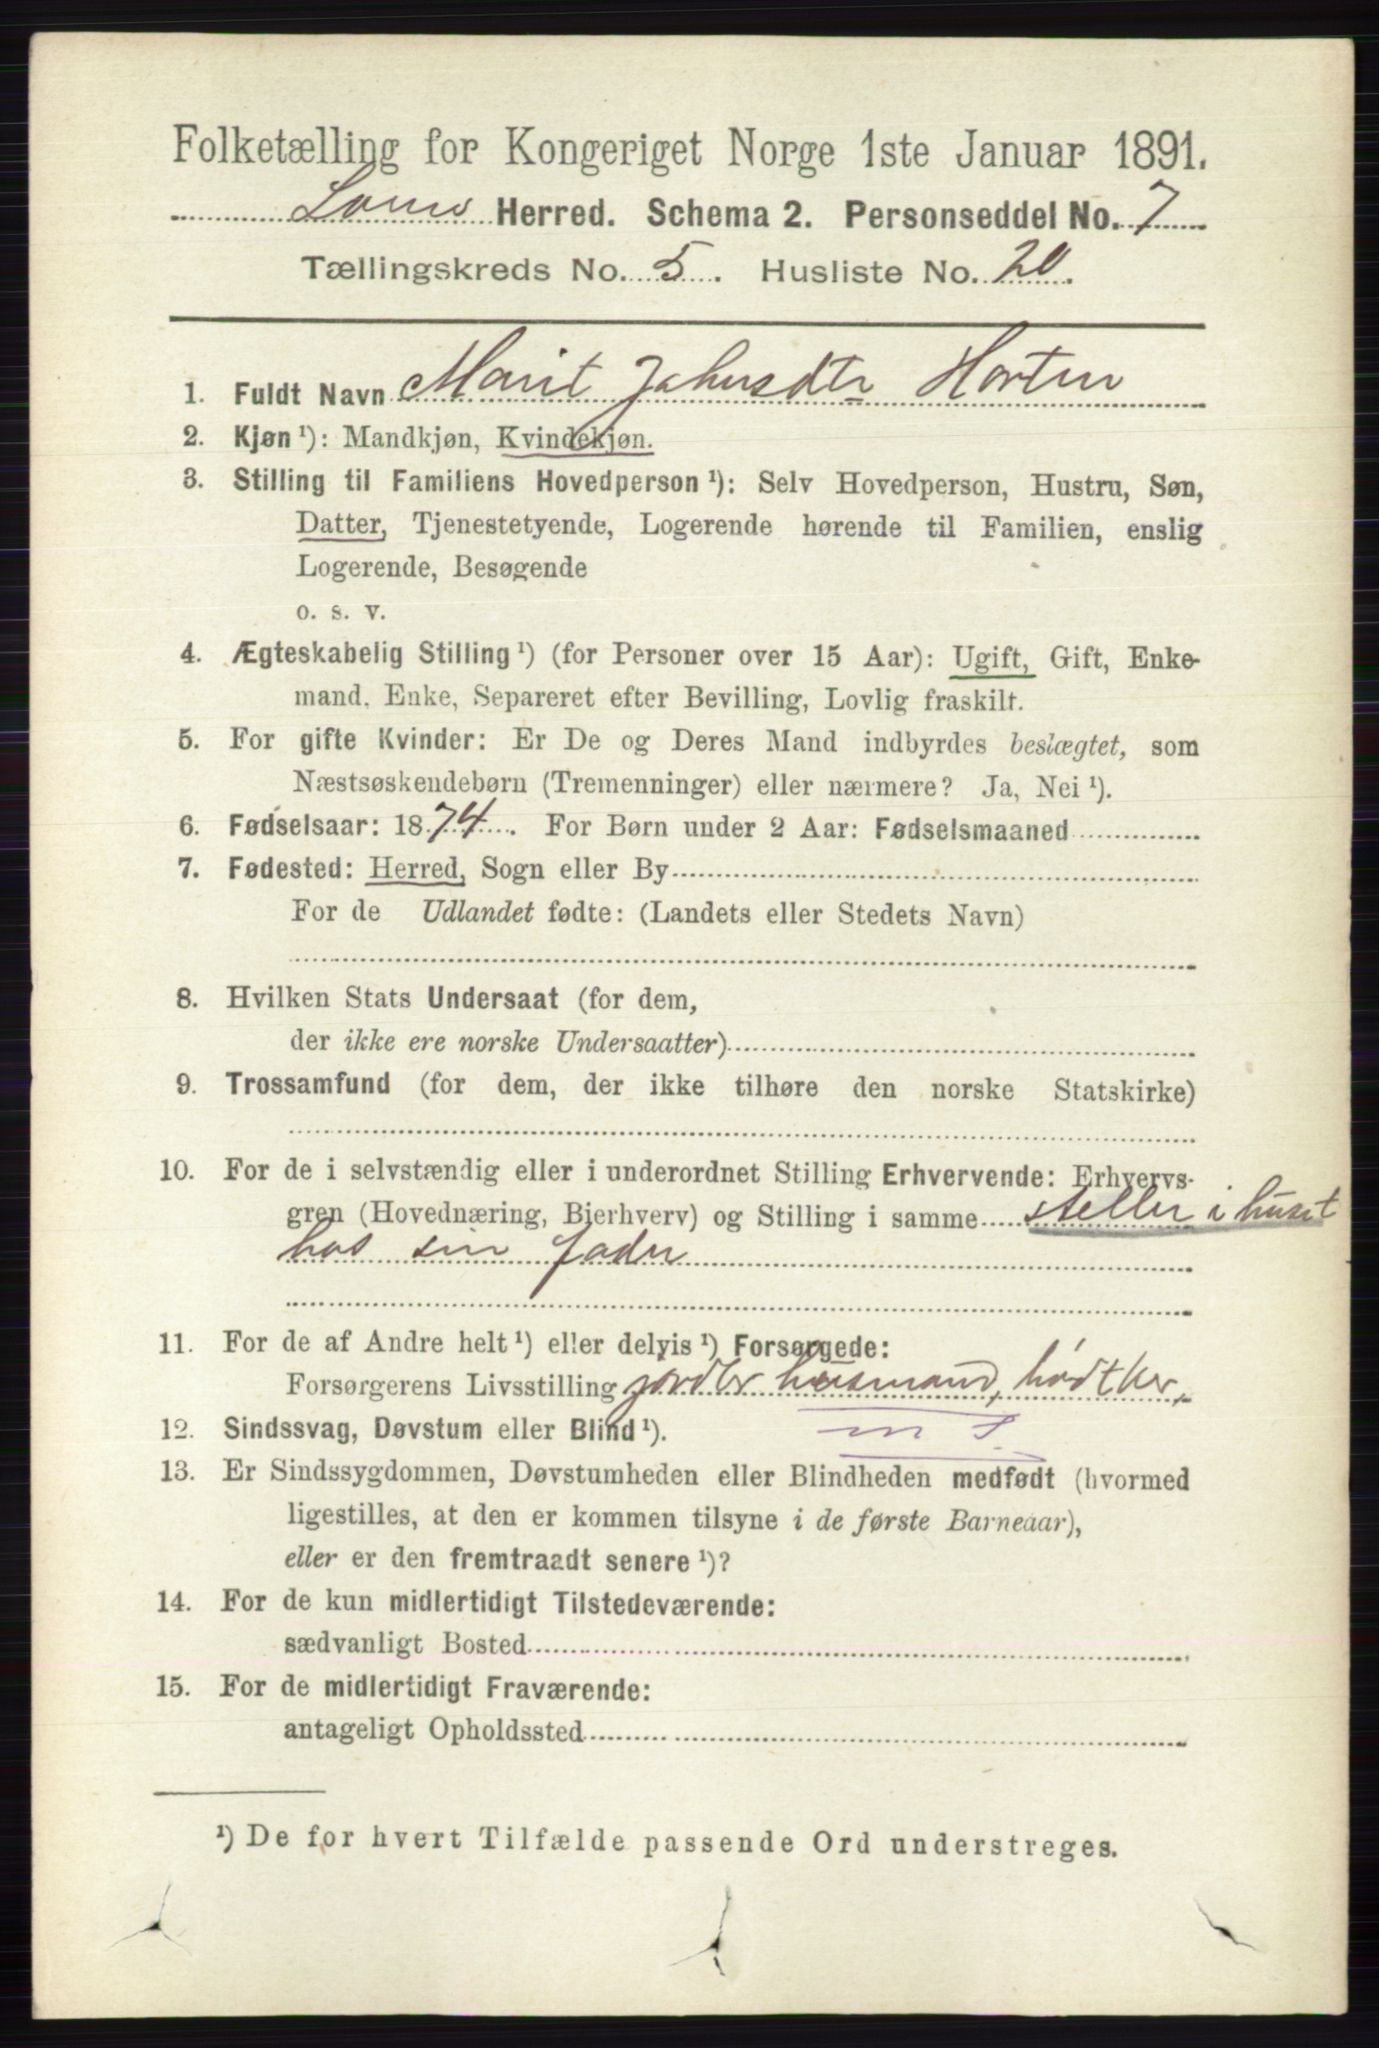 Folketælling for Kongeriget Norge 1ste Januar 1891.
Loms Herred. Schema 2. Personseddel No. 7
Tællingskreds No. 5. Husliste No. 20.
1. Fuldt Navn Marit Horten
2. Kjøn ¹): Mandkjøn, Kvindekjøn.
3. Stilling til Familiens Hovedperson ¹): Selv Hovedperson, Hustru, Søn,
Datter, Tjenestetyende, Logerende hørende til Familien, enslig
Logerende, Besøgende
o. s. v.
4. Ægteskabelig Stilling ¹) (for Personer over 15 Aar): Ugift, Gift, Enke-
mand, Enke, Separeret efter Bevilling, Lovlig fraskilt.
5. For gifte Kvinder: Er De og Deres Mand indbyrdes beslægtet, som
Næstsøskendebørn (Tremenninger) eller nærmere? Ja, Nei ¹).
6. Fødselsaar: 1874. For Børn under 2 Aar: Fødselsmaaned
7. Fødested: Herred, Sogn eller By
For de Udlandet fødte: (Landets eller Stedets Navn)
8. Hvilken Stats Undersaat (for dem,
der ikke ere norske Undersaatter)
9. Trossamfund (for dem, der ikke tilhøre den norske Statskirke)
10. For de i selvstændig eller i underordnet Stilling Erhvervende: Erhvervs-
gren (Hovednæring, Bierhverv) og Stilling i samme steller i huset
hos sin fader
11. For de af Andre helt ¹) eller delvis ¹) Forsørgede:
Forsørgerens Livsstilling husmand,
12. Sindssvag, Døvstum eller Blind ¹).
13. Er Sindssygdommen, Døvstumheden eller Blindheden medfødt (hvormed
ligestilles, at den er kommen tilsyne i de første Barneaar),
eller er den fremtraadt senere ¹)?
14. For de kun midlertidigt Tilstedeværende:
sædvanligt Bosted
15. For de midlertidigt Fraværende:
antageligt Opholdssted
¹) De for hvert Tilfælde passende Ord understreges.